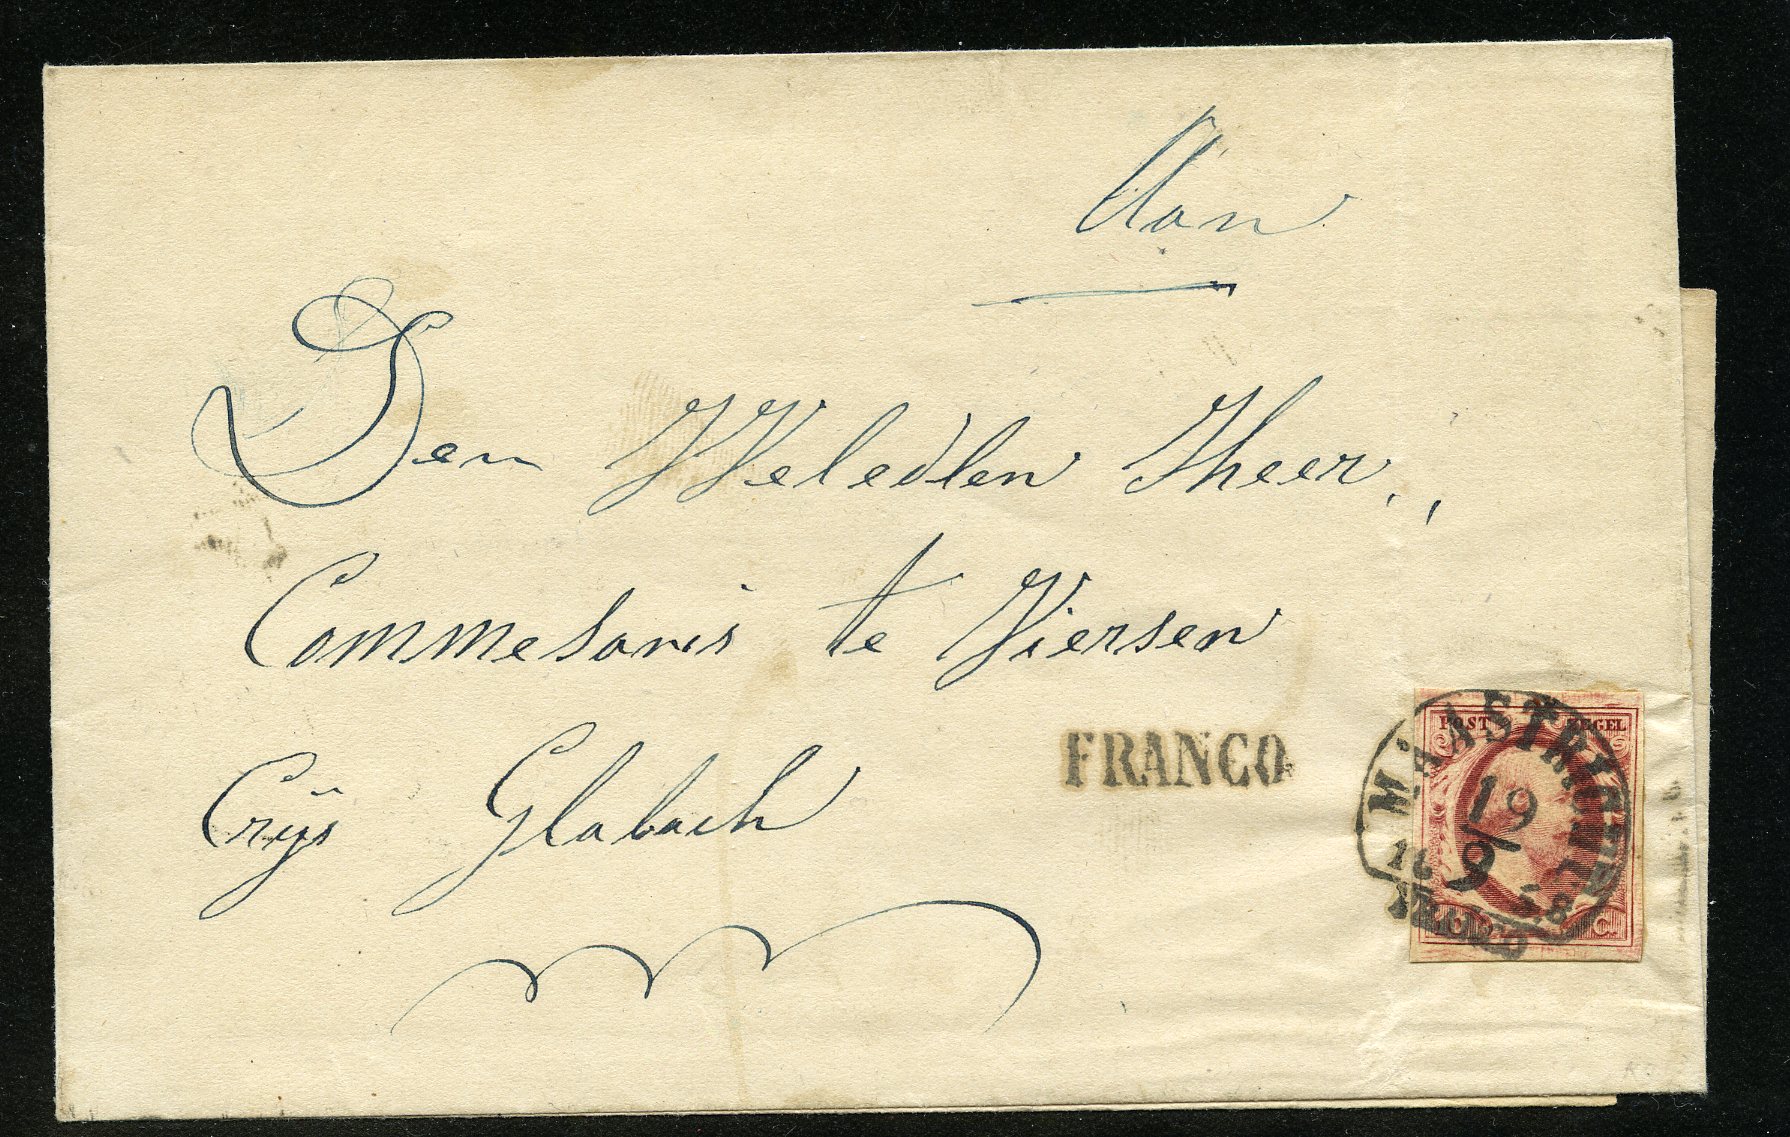 Aan
Den WelEdlen Heer,,
Commesaris te Viersen
Crÿs Glabach
FRANCO
POST ZEGEL
MAASTRICHT
19
9
10 C.
FRANCO